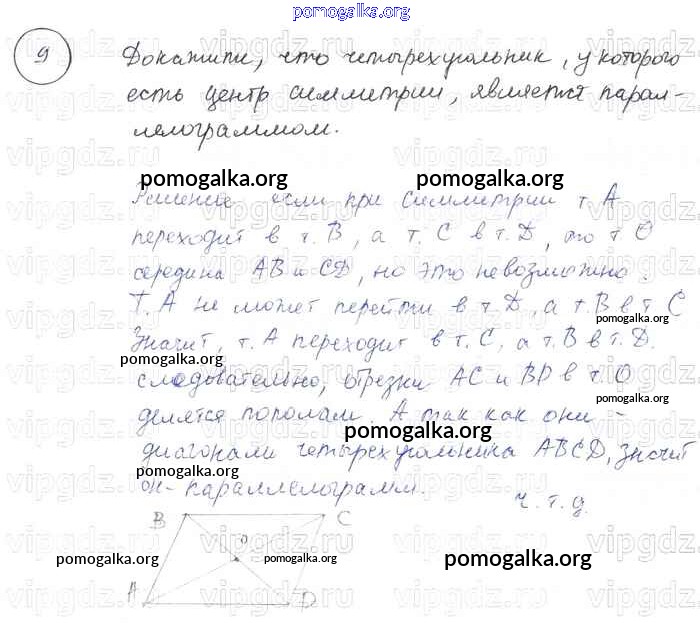 pomogalka.org
9
Докажите, что четырехугольник, у которого
есть центр симметрии, является парал-
лелограммом.
pomogalka.org pomogalka.org
Решение если при симметрии т. А
переходит в т. В, а т. С в т. D, то т О
середина АВ и CD, но это невозможно.
Т. А не может перейти в т. D, а т. В в т. С
pomogalka.org
Значит, т. А переходит в т. С, а т. В в т. D.
pomogalka.org
следовательно, отрезки АС и BD в т. О
pomogalka.org
делятся пополам. А так как они -
pomogalka.org
диагонали четырехугольника ABCD, значит
pomogalka.org
он - параллелограмм.
ч. т. д.
B C
O
pomogalka.org pomogalka.org pomogalka.org
A D
vipgdz.ru